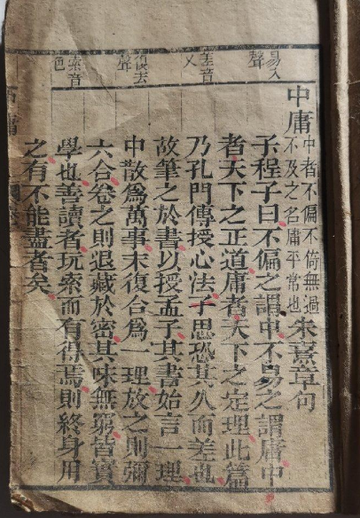 中庸
中者不偏不倚無過
不及之名庸平常也
朱熹章句
子程子曰不偏之謂中不易之謂庸中
者天下之正道庸者天下之定理此篇
乃孔門傳授心法子思恐其久而差也
故筆之於書以授孟子其書始言一理
中散為萬事末復合為一理放之則彌
六合卷之則退藏於密其味無窮皆實
學也善讀者玩索而有得焉則終身用
之有不能盡者矣
易入
聲
差音
又
復去
聲
索音
色